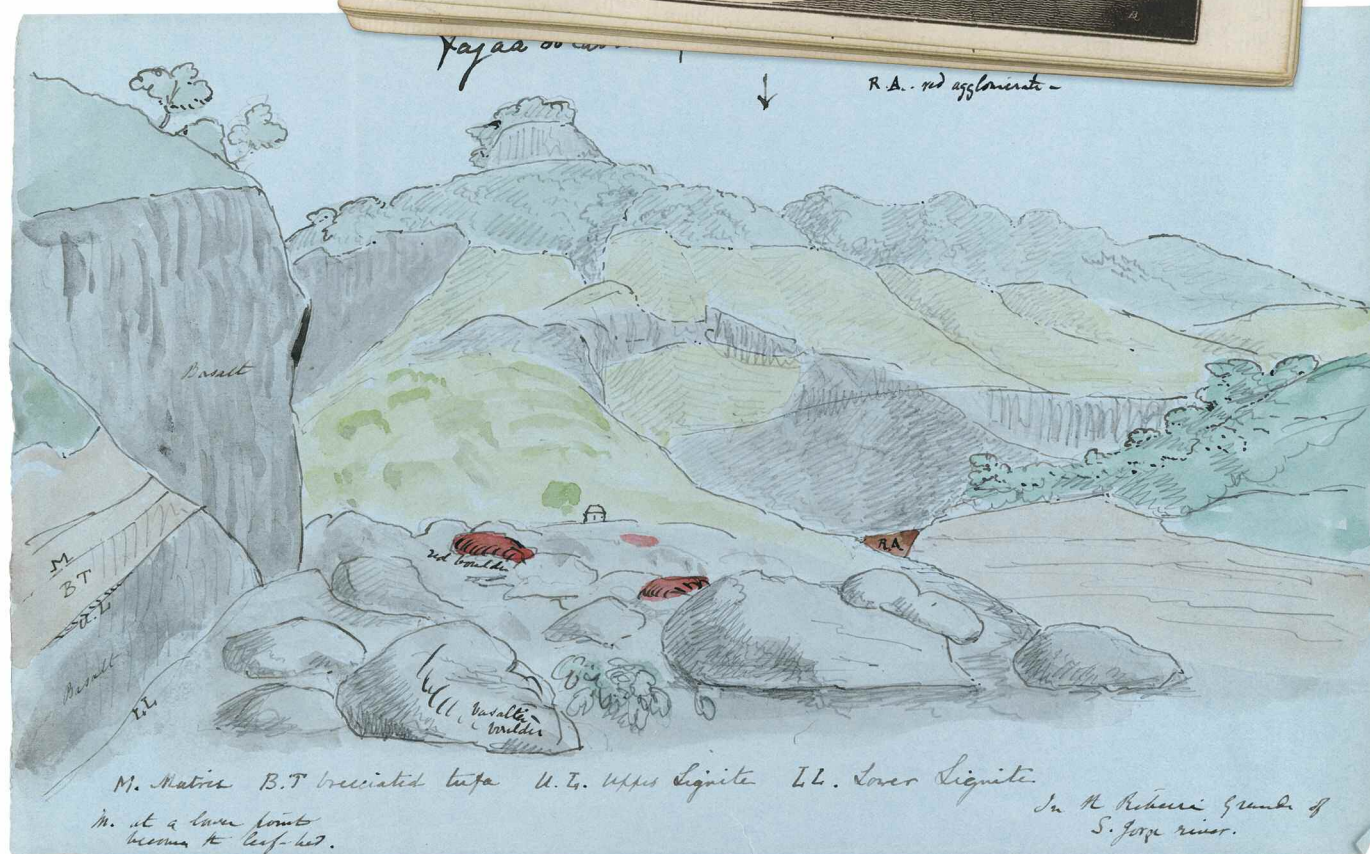 R.A. - red agglomerate -
Basalt
M
B T
U.L
Basalt
LL
red boulder
RA
basaltic
boulder
M. Matrix B.T brecciated tufa U.L. Upper Lignite LL. Lower Lignite
M. at a lower point
becomes the leaf-bed.
In the Ribeira Grande of
S. Jorge river.